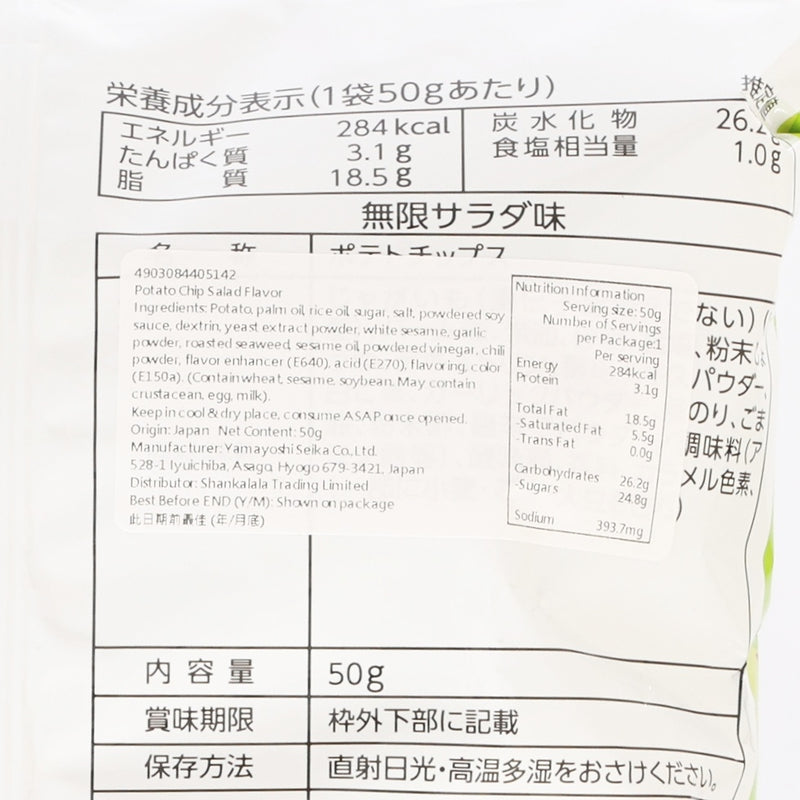 栄養成分表示(1袋50gあたり)
エネルギー 284kcal 炭水化物 26.2g
たんぱく質 3.1g 食塩相当量 1.0g
脂質 18.5g
無限サラダ味
名称 ポテトチップス
4903084405142
Potato Chip Salad Flavor
Ingredients: Potato, palm oil, rice oil, sugar, salt, powdered soy
sauce, dextrin, yeast extract powder, white sesame, garlic
powder, roasted seaweed, sesame oil, powdered vinegar, chili
powder, flavor enhancer (E640), acid (E270), flavoring, color
(E150a). (Contain wheat, sesame, soybean. May contain
crustacean, egg, milk).
Keep in cool & dry place, consume ASAP once opened.
Origin: Japan Net Content: 50g
Manufacturer: Yamayoshi Seika Co., Ltd.
528-1 Iyuichiba, Asago, Hyogo 679-3421, Japan
Distributor: Shankalala Trading Limited
Best Before END (Y/M): Shown on package
此日期前最佳 (年/月底)
Nutrition Information
Serving size: 50g
Number of Servings
per Package:1
Per serving
Energy 284kcal
Protein 3.1g
Total Fat 18.5g
-Saturated Fat 5.5g
-Trans Fat 0.0g
Carbohydrates 26.2g
-Sugars 24.8g
Sodium 393.7mg
ない)(
、粉末
パウダー、
のり、ごま
調味料(ア
メル色素、
)
内容量 50g
賞味期限 枠外下部に記載
保存方法 直射日光・高温多湿をおさけください。